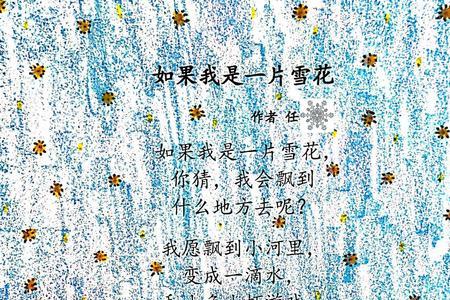 如果我是一片雪花
作者 任
如果我是一片雪花，
你猜，我会飘到
什么地方去呢？
我愿飘到小河里，
变成一滴水，